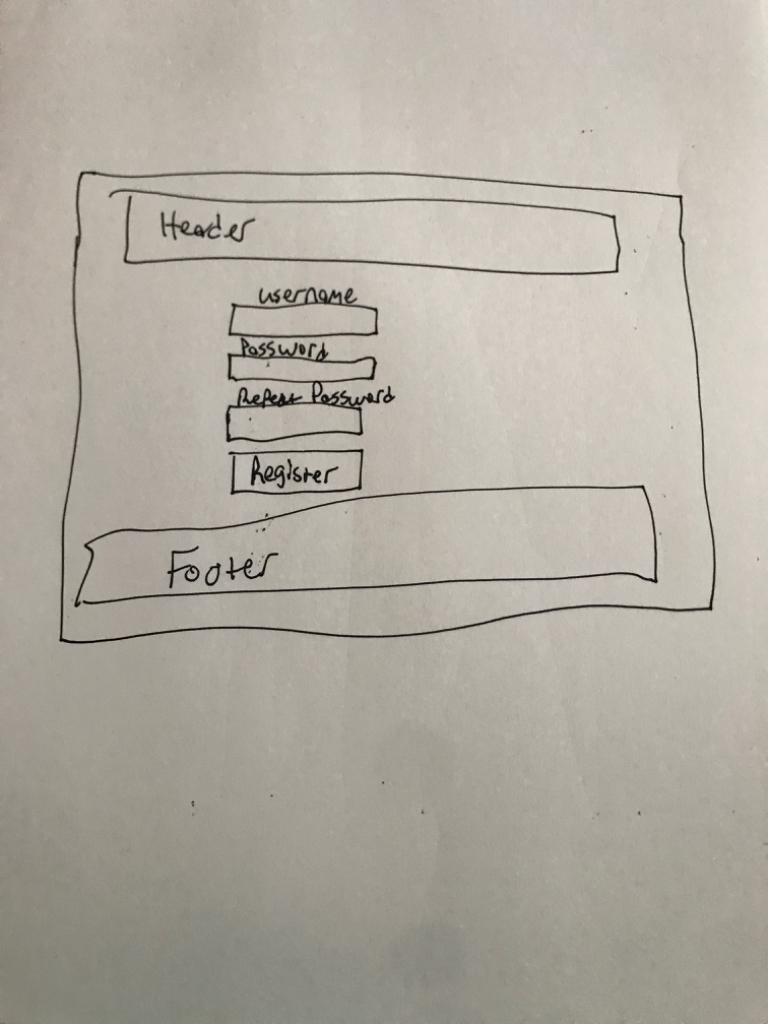 Header
username
Password
Repeat Password
Register
Footer